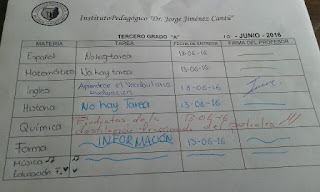 Instituto Pedagógico "Dr. Jorge Jiménez Cantú"
TERCERO GRADO "A" 10 - JUNIO - 2016
MATERIA TAREA FECHA DE ENTREGA FIRMA DEL PROFESOR
Español No hay tarea 13-06-16
Matemáticas No hay tarea 13-06-16
Ingles Aprenderse el vocabulario 13-06-16
Historia No hay Tarea 13-06-16
Química Productos de la 13-06-16
destilación del petróleo
Forma INFORMACIÓN 13-06-16
Música
Educación F.